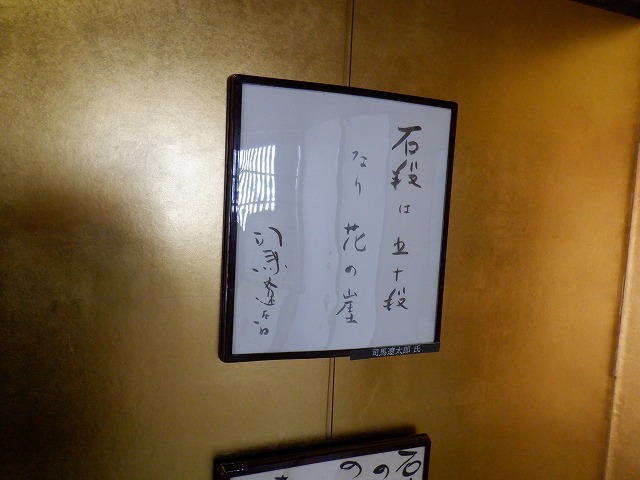 石段は五十段
なり 花の崖
司馬遼太郎
司馬遼太郎 氏
石
の
の